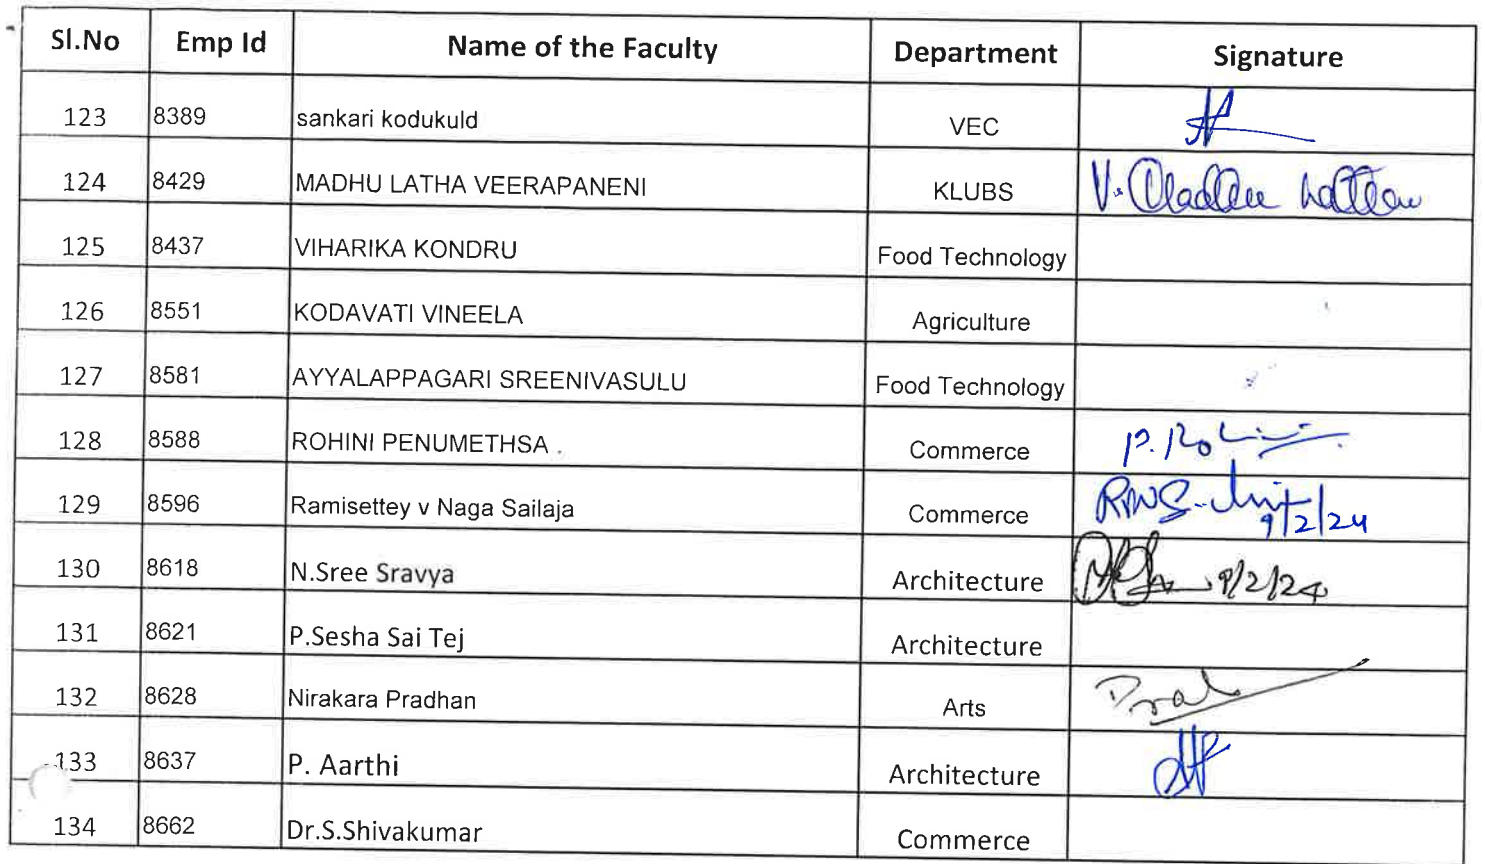 Sl.No Emp Id Name of the Faculty Department Signature
123 8389 sankari kodukuld VEC
124 8429 MADHU LATHA VEERAPANENI KLUBS V. Madhu Latha
125 8437 VIHARIKA KONDRU Food Technology
126 8551 KODAVATI VINEELA Agriculture
127 8581 AYYALAPPAGARI SREENIVASULU Food Technology
128 8588 ROHINI PENUMETHSA . Commerce P. Rohini
129 8596 Ramisettey v Naga Sailaja Commerce 9/2/24
130 8618 N.Sree Sravya Architecture 9/2/24
131 8621 P.Sesha Sai Tej Architecture
132 8628 Nirakara Pradhan Arts
133 8637 P. Aarthi Architecture
134 8662 Dr.S.Shivakumar Commerce